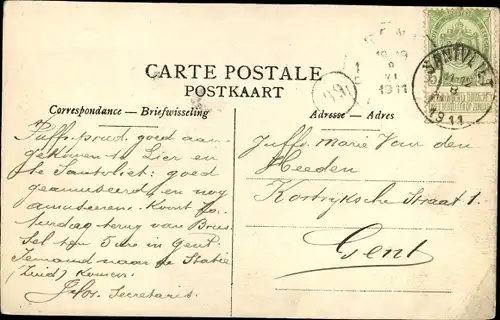 CARTE POSTALE
POSTKAART
Correspondance — Briefwisseling
Adresse — Adres
Juffr. prud. goed aan-
gekomen te Lier en
te Santvliet: goed
geamuseerd en nog
amuseeren. Komt
terug van Brus
sel ten 5 ure in Gent
Iemand naar de Statie
(Zuid) komen.
Secretaris
Juffr. Marie Van den
Heeden
Kortrijksche Straat 1.
Gent
1911
1911